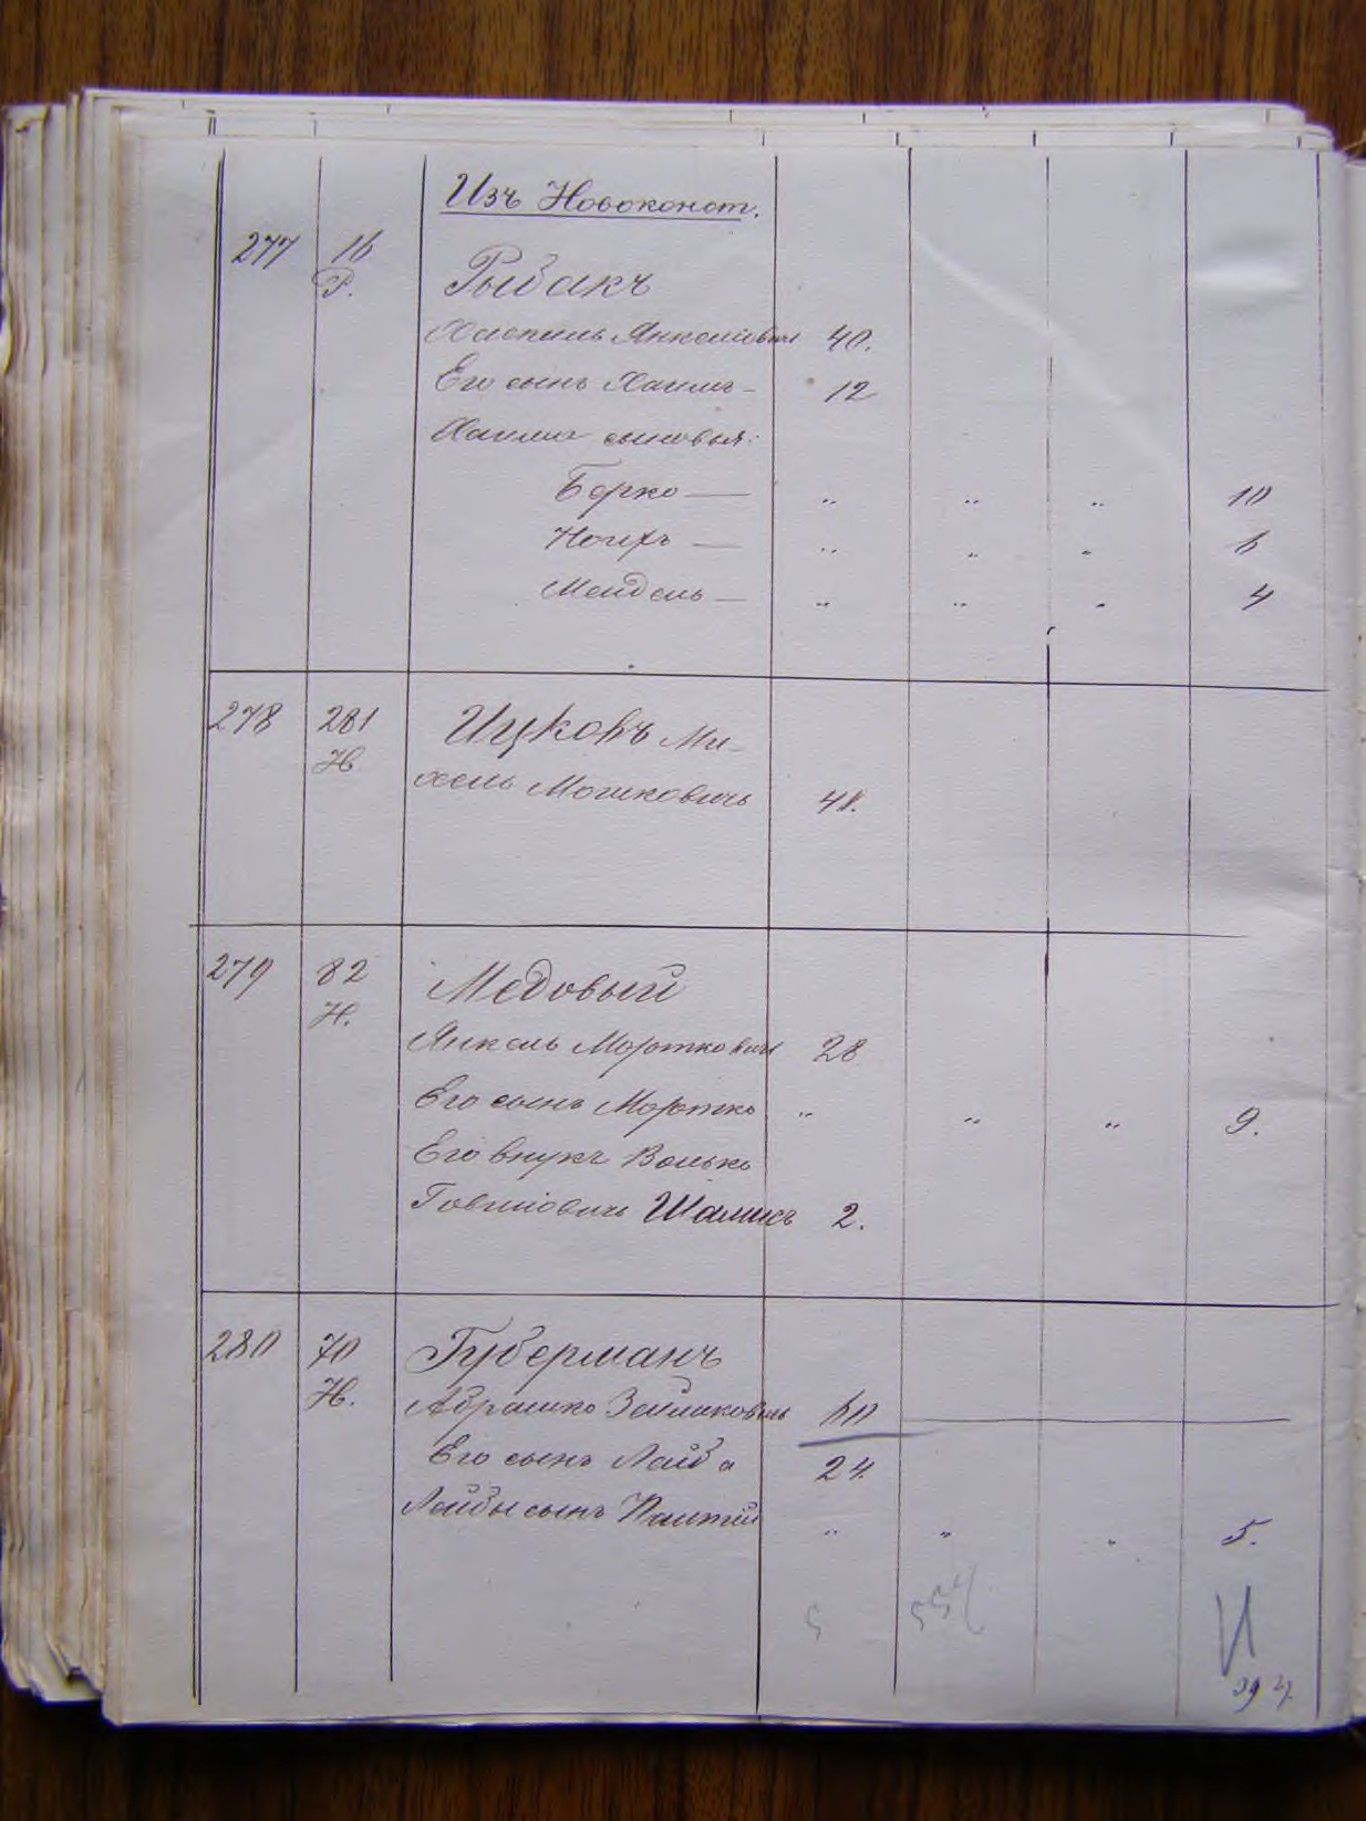 Изъ Новоконст.
277 16 Рыбакъ
Р.
Хаскель Янкелевичъ 40.
Его сынъ Хаимъ - 12
Хаима сыновья:
Берко — " " " 10
Мендель — " " " 4
278 281 Ицковъ Ми-
Н
хель Мошковичъ 41.
279 82 Медовый
Н.
Янкель Мортковичъ 28
Его сынъ Мортко " " " 9.
Его внукъ Волько
2.
280 70 Губерманъ
Н.
Абрамко Зельмановичъ 60
Его сынъ Лейба 24.
Лейбы сынъ " " " 5.